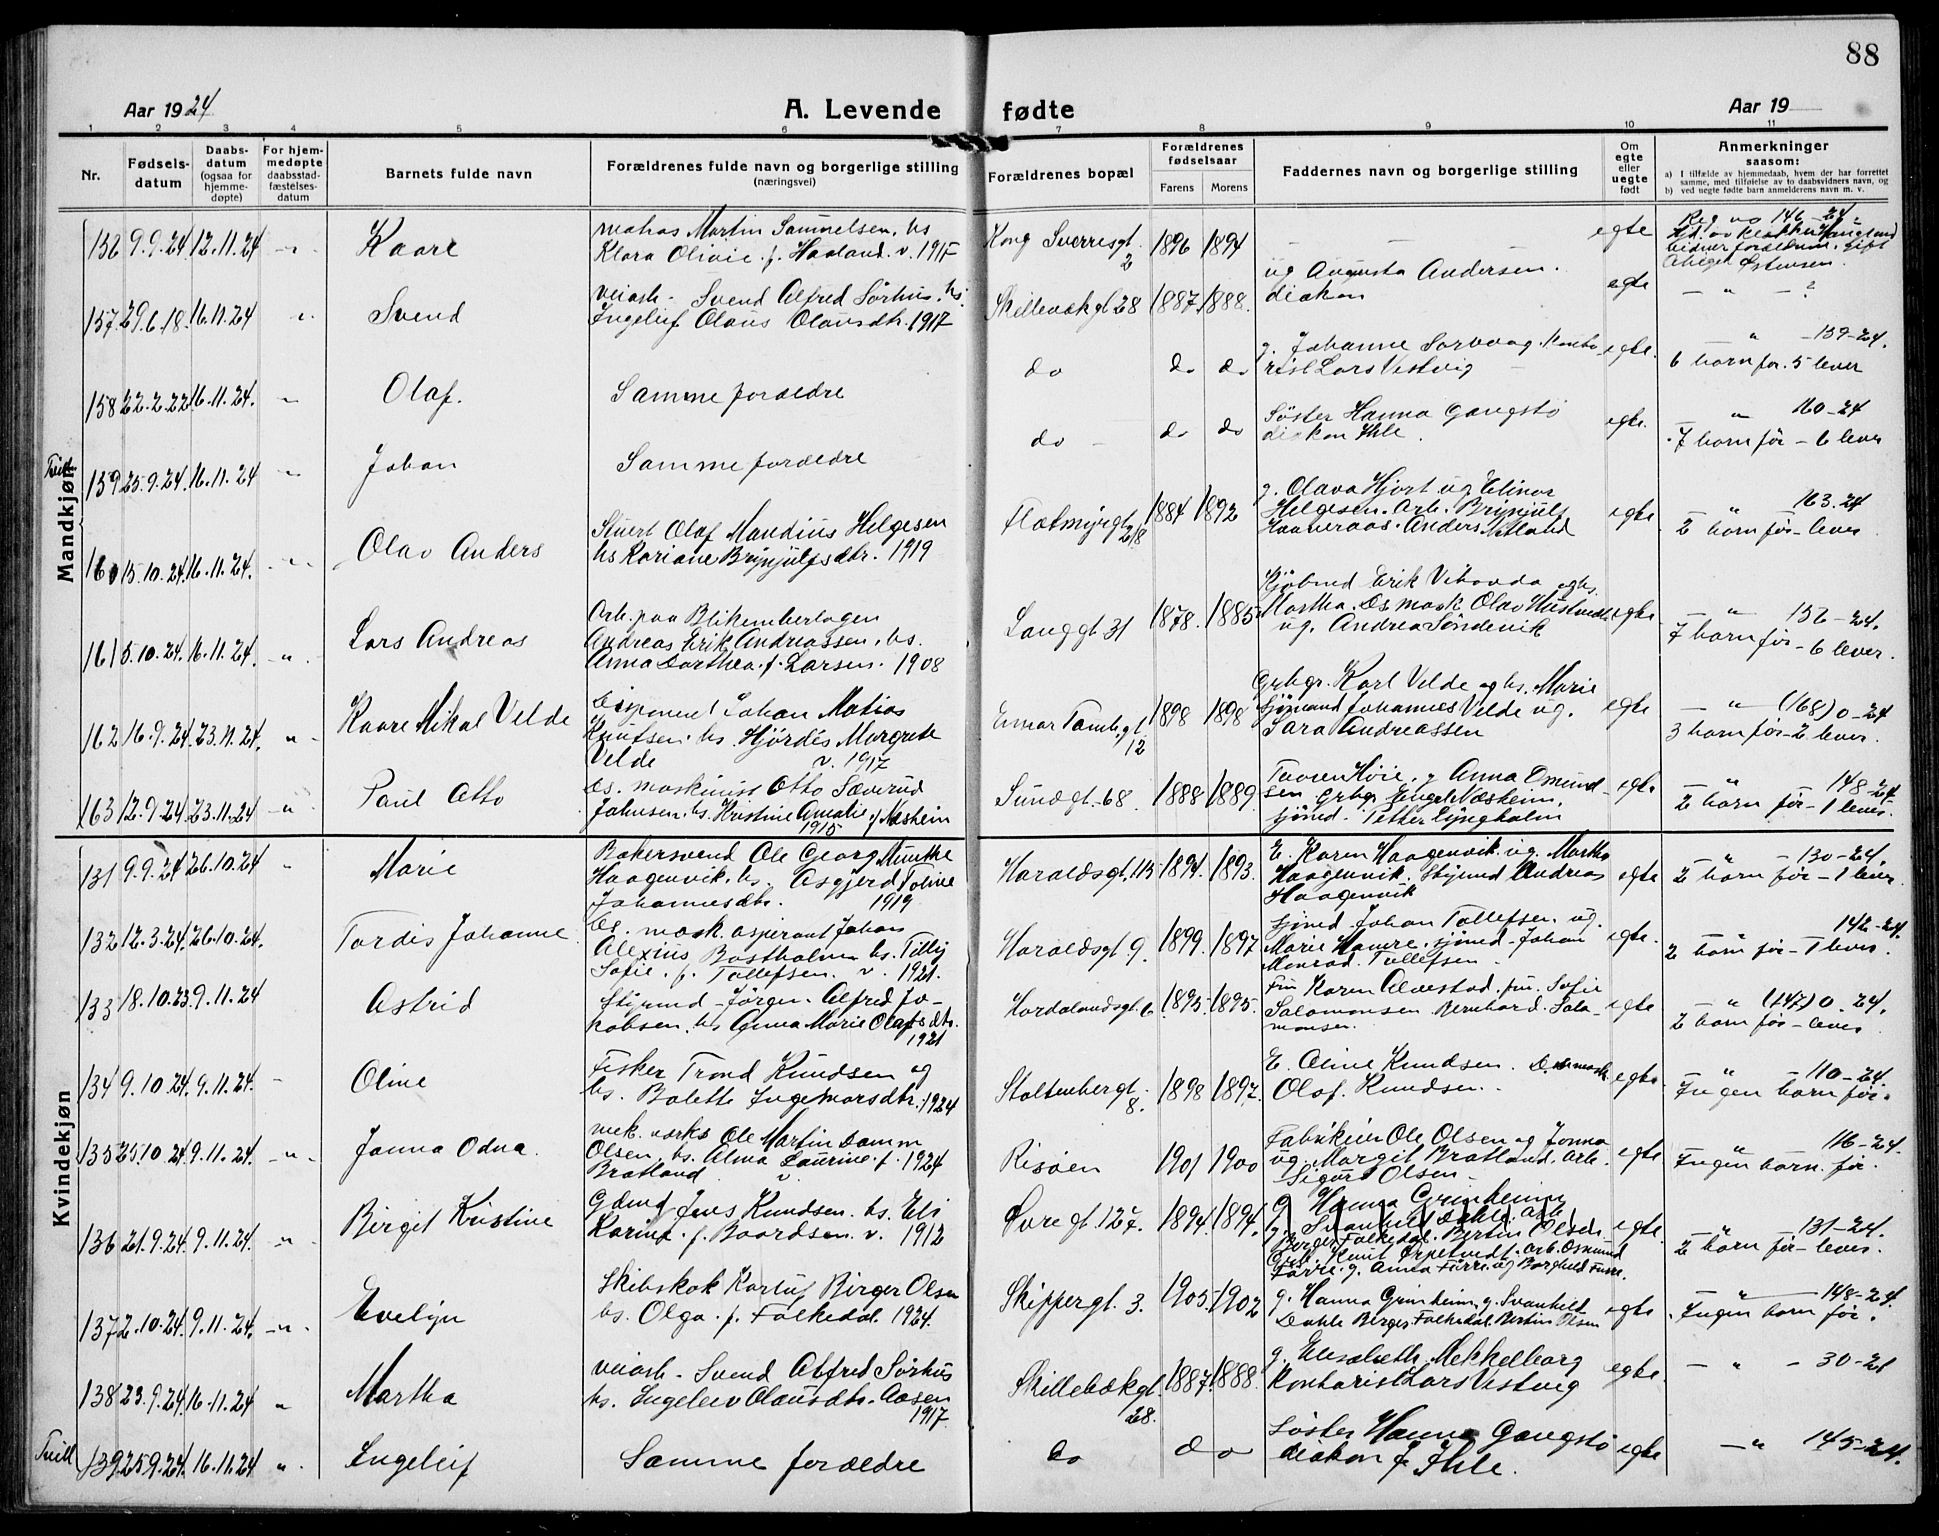 88
Aar 1924
A. Levende fødte
Aar 19
1 2 3 4 5 6 7 8 9 10 11
Nr.
Fødsels-
datum
Daabs-
datum
(ogsaa for
hjemme-
døpte)
For hjem-
medøpte
daabsstad-
fæstelses-
datum
Barnets fulde navn
Forældrenes fulde navn og borgerlige stilling
(næringsvei)
Forældrenes bopæl
Forældrenes
fødselsaar
Farens Morens
Faddernes navn og borgerlige stilling
Om
egte
eller
uegte
født
Anmerkninger
saasom:
a) I tilfælde av hjemmedaab, hvem der har forrettet
samme, med tilføielse av to daabsvidners navn, og
b) ved uegte fødte barn anmelderens navn m. v.
Mandkjøn
156 9.9.24 12.11.24 Kaare
Martin Samuelsen. hs
Klara Olivie f. Haaland. v. 1915
Kong Sverresgt. 2 1896 1894 — — — egte
Reg. no 146-24
157 29.6.18. 16.11.24 Svend
veiarb. Svend Alfred Sørhus. hs.
Ingeleif Olaus Olausdtr. 1917
Skillebækgt 28 1887. 1888.
ug Augusta Andersen.
diakon
egte — " — ?
158 22.2.22. 16.11.24. Olaf. Samme forældre
do do do
g. Johanne Sørvaag. Konto-
rist Lars Vestvig
egte. " 139-24.
6 barn før. 5 lever
Tvill
159 25.9.24. 16.11.24 Johan Samme forældre
do do do
Søster Hanna Gangstø
diakon Ihle.
egte. — " 160-24
7 barn før - 6 lever
160 15.10.24. 16.11.24. Olav Anders
Stuert Olaf Mandius Helgesen
hs Kariane Brynjulfsdtr. 1919
Flotmyrgt. 218 1884 1892
g. Olava Hjort ug Elinor
Helgesen. Arb. Brynjulf
Haaveraas. Anders Netland
egte " 163-24
2 barn før - lever
161 5.10.24. 16.11.24. Lars Andreas
Arb. paa Blikemberlagen
Andreas Erik Andreassen. hs.
Anna Dorthea. f. Larsen. 1908
Langgt 31 1878. 1885
Kjøbmd Erik Vibovde og hs.
Martha. Ds mask Olav
ug. Andrea Søndenik
egte — " 152-24.
7 barn før - 6 lever.
162 16.9.24. 23.11.24. Kaare Mikal Velde
Johan Matias
Knutsen. hs. Hjørdis Margrete
Velde v. 1917
Einar Tamb.gt. 12 1898 1898
Grbgr. Karl Velde og hs. Marie
Sjømand Johannes Velde ug.
Sara Andreassen
egte — " (168) 0-24
3 barn før - 2 lever.
163 12.9.24. 23.11.24 Paul Otto
Ds. maskinist Otto Sæverud
Johnsen. hs. Kristine Amalie f. Næsheim
1915
Sundgt. 68 1888 1889
Høie. g Anna Omund-
sen Grbgr. Engel Næsheim,
sjømd. Petter Lyngholm
egte — " 148-24
2 barn før - 1 lever.
Kvindekjøn
131 9.9.24 26.10.24 Marie
Bakersvend Ole Georg Munthe
Haagenvik. hs. Asgjerd Toline
Johannesdtr. 1919
Haraldsgt. 115 1894. 1893.
E. Karen Haagenvik. ug. Martha
Haagenvik. Stjmd Andreas
Haagenvik
egte — " — 130-24.
2 barn før - 1 lever
132 12.3.24. 26.10.24. Tordis Johanne
Ds. mask. aspirant Johan
Alexius Bostholm hs. Tilly
Sofie. f. Tollefsen. v. 1921.
Haraldsgt. 9. 1899. 1897.
sjømd. Johan Tollefsen. ug.
Marie Hamre. sjømd. Johan
Monrad. Tollefsen
egte. " 142-24.
2 barn før - 1 lever.
133 18.10.23. 9.11.24 Astrid
Stjmnd - Jørgen. Alfred Ja-
kobsen. hs Anna Marie Olafsdtr.
1921
Hordalandsgt. 6 1895. 1895.
Fru Karen Alvestad. fru. Sofie
Salomonsen Bernhard. Salo-
monsen.
egte — " (147) 0-24.
2 barn før - lever
134 9.10.24. 9.11.24. Oline
Fisker Trond Knudsen og
hs. Bolette Ingemarsdtr. 1924
Stoltenbergt. 8. 1898 1897.
E. Oline Knudsen. D.s mask
Olaf. Knudsen.
egte — " — 110-24.
Ingen barn før.
135 25.10.24. 9.11.24. Janna Odna.
mek. verks Ole Martin Damm
Olsen. hs. Alma Laurine. f. 1924
Bratland.
Risøen 1901 1900
Fabrikeier Ole Olsen og Jonna
ug. Margit Bratland. Arb.
Sigurd Olsen
egte — " 116-24.
Ingen barn. før.
136 21.9.24. 9.11.24. Birgit Kristine
Jens Knudsen. hs. Eli
Karine. f. Baardsen. v. 1912
Øvregt. 127. 1894. 1894.
g. Hanna Grinheim
g. Svanhild Dahle. Arb
Birger Falkedal. Bertin Olsen
Knut Erpetvedt. arb. Osmund
Førre. g. Anna Førre. og Borghild Førre.
egte. " 131-24.
2 barn før - lever.
137 2.10.24. 9.11.24. Evelyn
Skibskok Karluf Birger Olsen
hs. Olga. f. Falkedal. 1924.
Skippergt. 3. 1905. 1902
g. Hanna Grinheim, g. Svanhild
Dahle Birger Falkedal Bertin Olsen
egte — " — 148-24.
Ingen barn før.
138 23.9.24. 16.11.24 Martha
veiarb. Svend Alfred Sørhus
hs. Ingeleiv Olausdtr. Aasen
1917.
Skillebækgt. 28. 1887. 1888.
g. Elisabeth. Mekkelborg
Kontorist Lars Vestvig
egte — " — 30-24
Tvill
139 25.9.24. 16.11.24 Ingeleif Samme forældre
do do
Søster Hanna Gangstø
diakon J. Ihle.
egte — " 145-24.